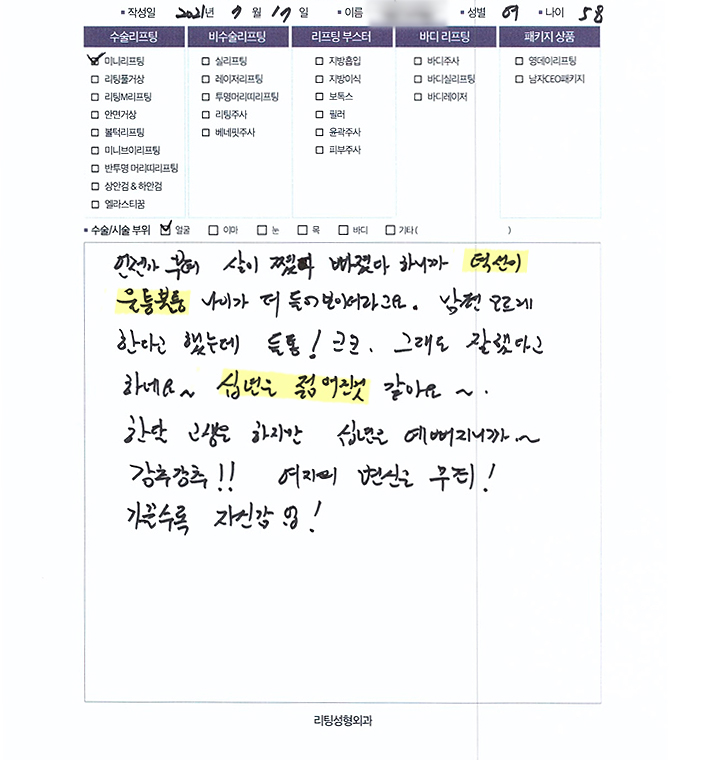 ▪ 작성일 2021년 7 월 17 일 ▪ 이름 ▪ 성별 여 ▪ 나이 58
수술리프팅 비수술리프팅 리프팅 부스터 바디 리프팅 패키지 상품
미니리프팅 실리프팅 지방흡입 바디주사 영데이리프팅
리팅풀거상 레이저리프팅 지방이식 바디실리프팅 남자CEO패키지
리팅M리프팅 투명머리띠리프팅 보톡스 바디레이저
안면거상 리팅주사 필러
볼턱리프팅 베네핏주사 윤곽주사
미니브이리프팅 피부주사
반투명 머리띠리프팅
상안검 & 하안검
엘라스티꿈
▪ 수술/시술 부위 얼굴 이마 눈 목 바디 기타( )
언젠가 부터 살이 쪘다 빠졌다 하니까 턱선이
울퉁불퉁 나이가 더 들어보이더라고요. 남편 모르게
한다고 했는데 들통! ㅋㅋ. 그래도 잘했다고
하네요~ 십년은 젊어진것 같아요~.
한달 고생은 하지만 십년은 예뻐지니까~
강추강추!! 여자의 변신은 무죄!
가꿀수록 자신감 up!
리팅성형외과